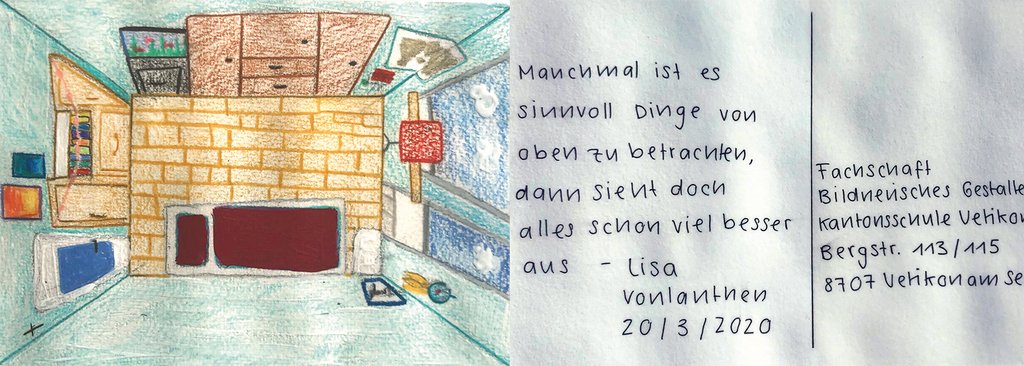 Manchmal ist es
sinnvoll Dinge von
oben zu betrachten,
dann sieht doch
alles schon viel besser
aus - Lisa
Vonlanthen
20/3/2020
Fachschaft
Bildnerisches Gestalte
Kantonsschule Uetikon
Bergstr. 113/115
8707 Uetikon am Se